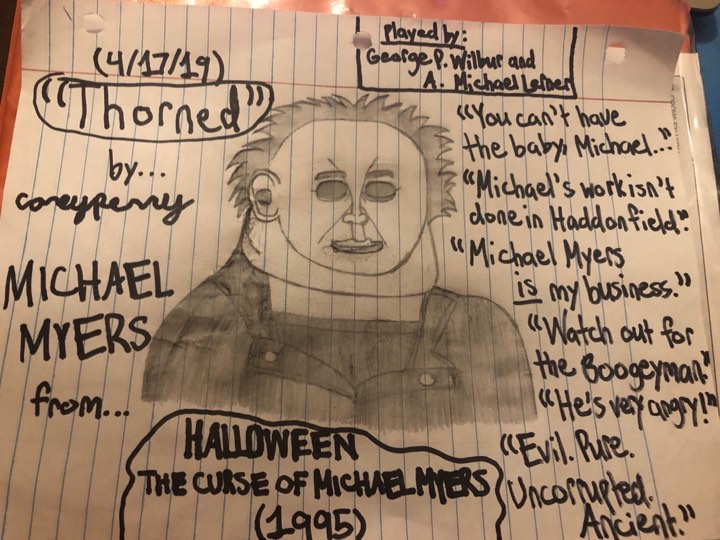 (4/17/19)
"Thorned"
by...
coreyperry
MICHAEL
MYERS
from...
HALLOWEEN
THE CURSE OF MICHAEL MYERS
(1995)
Played by:
George P. Wilbur and
A. Michael Lerner
"You can't have
the baby, Michael..."
"Michael's work isn't
done in Haddonfield."
"Michael Myers
is my business."
"Watch out for
the Boogeyman."
"He's very angry!"
"Evil. Pure.
Uncorrupted.
Ancient."